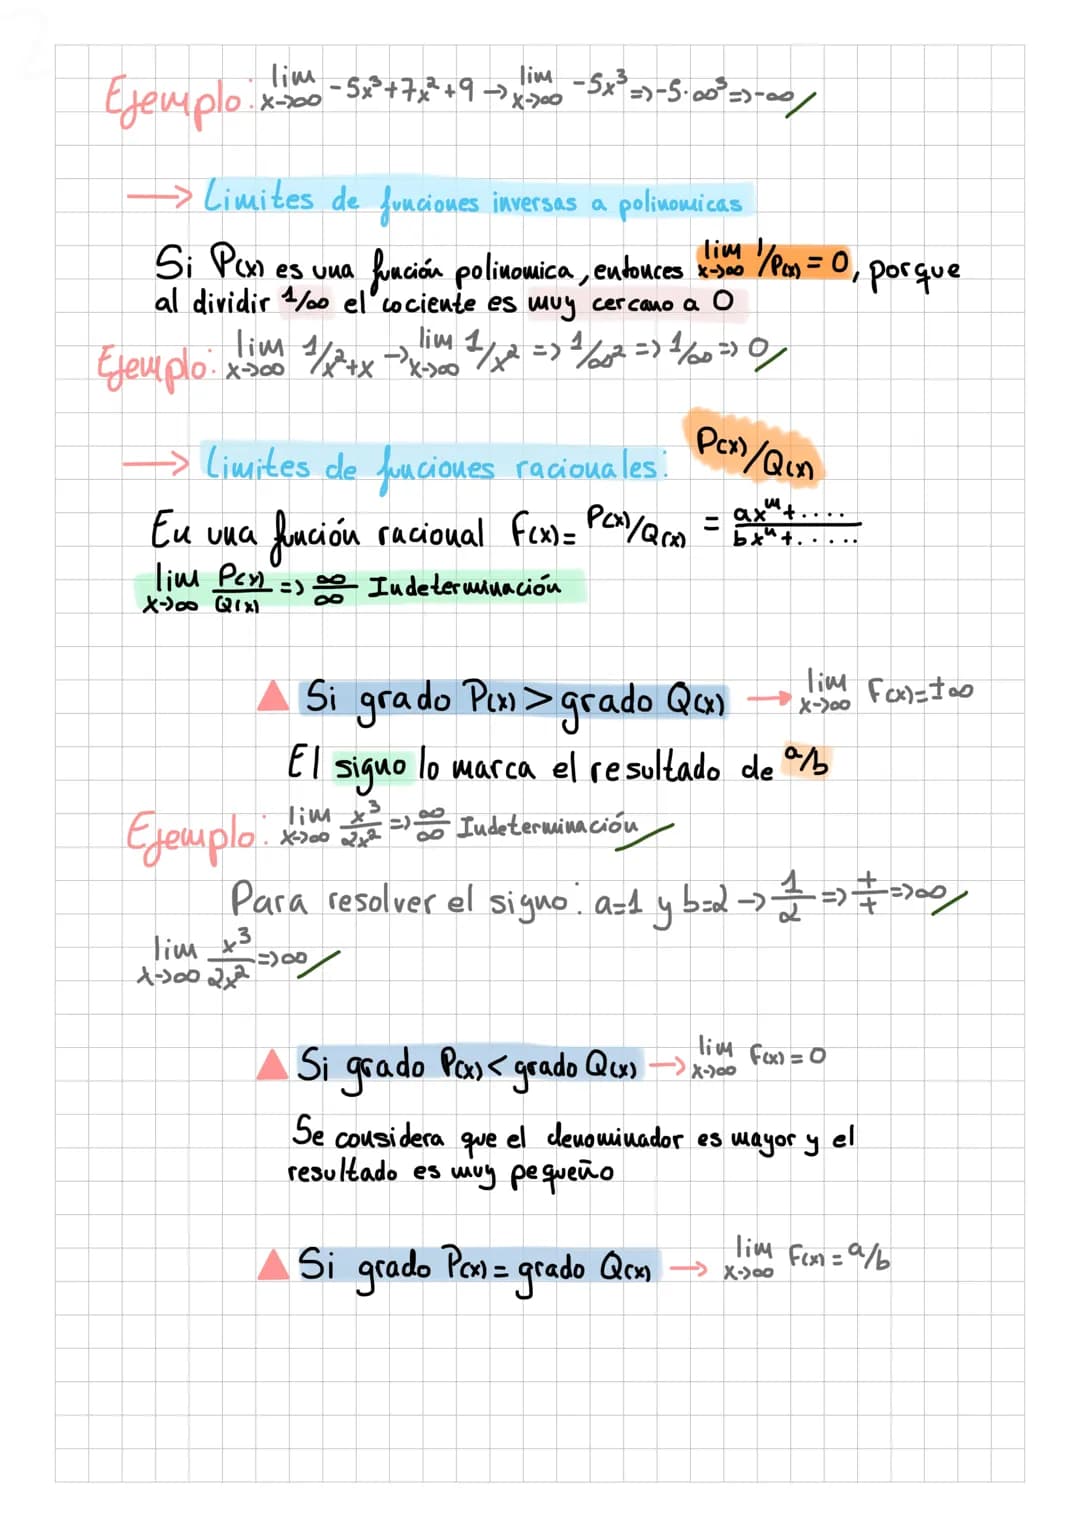 Ejemplo: lim x->∞ -5x³+7x²+9 → lim x->∞ -5x³ => -5·∞³ => -∞
→ Limites de funciones inversas a polinomicas
Si P(x) es una función polinomica, entonces lim x->∞ 1/P(x) = 0, porque
al dividir 1/∞ el cociente es muy cercano a 0
Ejemplo: lim x->∞ 1/x²+x → lim x->∞ 1/x² => 1/∞² => 1/∞ => 0
→ Limites de funciones racionales: P(x)/Q(x)
En una función racional F(x)= P(x)/Q(x) = ax^m+..../bx^n+.....
lim x->∞ P(x)/Q(x) => ∞/∞ Indeterminación
▲ Si grado P(x) > grado Q(x) → lim x->∞ F(x)=±∞
El signo lo marca el resultado de a/b
Ejemplo: lim x->∞ x³/2x² => ∞/∞ Indeterminación
Para resolver el signo: a=1 y b=2 → 1/2 => +/+ => ∞
lim x->∞ x³/2x² => ∞
▲ Si grado P(x) < grado Q(x) → lim x->∞ F(x) = 0
Se considera que el denominador es mayor y el
resultado es muy pequeño
▲ Si grado P(x) = grado Q(x) → lim x->∞ F(x) = a/b